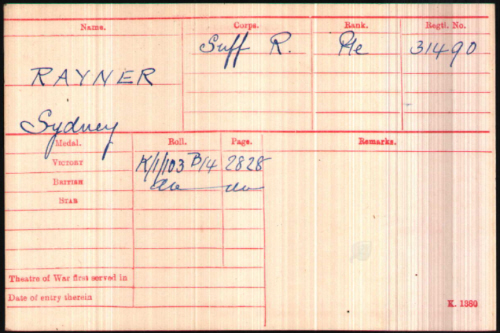 Name. Corps. Rank. Regtl. No.
Suff R. Pte 31490
RAYNER
Sydney
Medal. Roll. Page. Remarks.
Victory K/1/103 B14 2828
British do do
Star
Theatre of War first served in
Date of entry therein
K. 1380